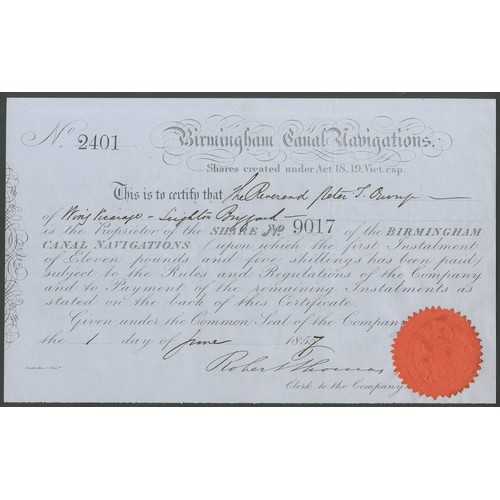 No 2401
Birmingham Canal Navigations.
Shares created under Act 18, 19, Vict. cap.
This is to certify that The Reverend Peter T. Ouvry
of Wing Vicarage - Leighton Buzzard
is the Proprietor of the SHARE No 9017 of the BIRMINGHAM
CANAL NAVIGATIONS (upon which the first Instalment
of Eleven pounds and five shillings has been paid)
subject to the Rules and Regulations of the Company
and to Payment of the remaining Instalments as
stated on the back of this Certificate.
Given under the Common Seal of the Company
the 1 day of June 1857
Robert Thomas
Clerk to the Company